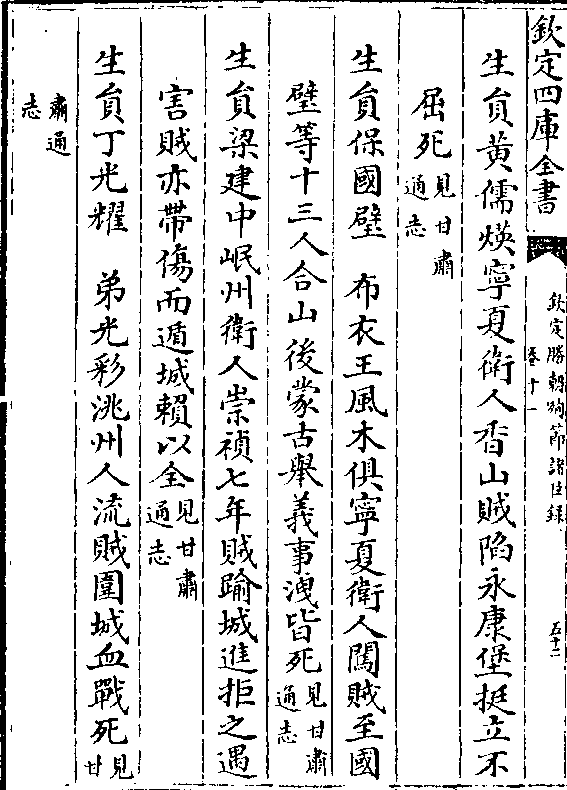 欽定四庫全書
欽定勝朝殉節諸臣録
卷十一
五十二
生員黃儒煐寧夏衛人香山賊陷永康堡挺立不
屈死見甘肅通志
生員保國璧　布衣王風木俱寧夏衛人闖賊至國
璧等十三人合山後蒙古舉義事洩皆死見甘肅通志
生員梁建中岷州衛人崇禎七年賊踰城進拒之遇
害賊亦帶傷而遁城賴以全見甘肅通志
生員丁光耀　弟光彩洮州人流賊圍城血戰死見甘
肅通志